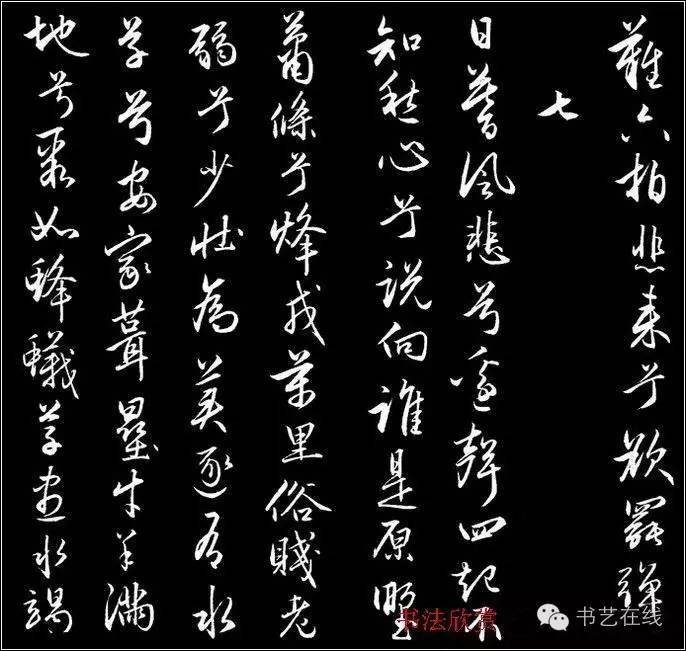 難六拍悲來兮欲罷彈
七
日暮風悲兮邊聲四起不
知愁心兮説向誰是原野
蕭條兮烽戍萬里俗賤老
弱兮少壯為美逐有水
草兮安家葺壘牛羊滿
地兮聚如蜂蟻草盡水竭
书法欣赏
书艺在线